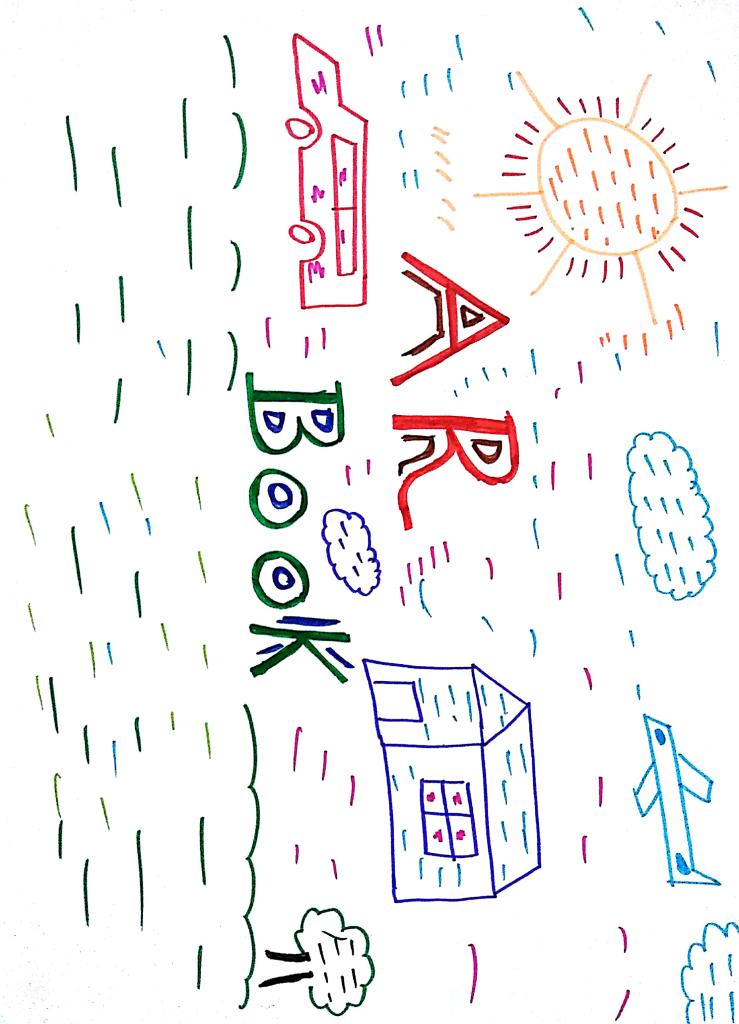 AR
BOOK